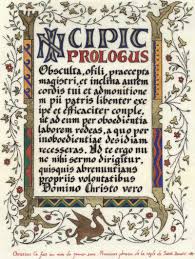 INCIPIT
PROLOGUS
Obsculta, o fili, praecepta
magistri, et inclina aurem
cordis tui et admonitionem
pii patris libenter exci
pe et efficaciter comple,
ut ad eum per oboedientiæ
laborem redeas, a quo per
inoboedientiae desidiam
recesseras. Ad te ergo nu
nc mihi sermo dirigitur,
quisquis abrenuntians
propriis voluntatibus
Domino Christo vero